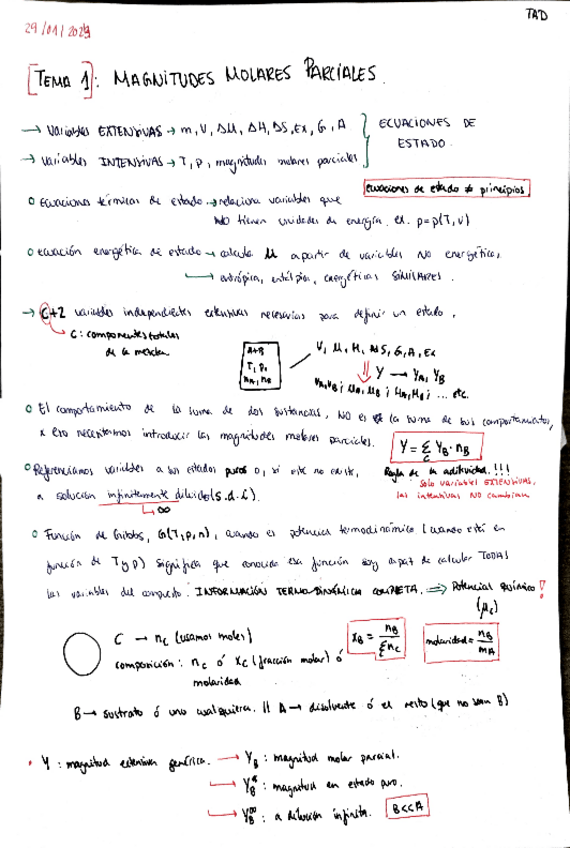 TAD
29/01/2024
[TEMA 1]: MAGNITUDES MOLARES PARCIALES.
→ Variables EXTENSIVAS → m, V, ΔU, ΔH, ΔS, Ex, G, A } ECUACIONES DE ESTADO.
→ Variables INTENSIVAS → T, p, magnitudes molares parciales
ecuaciones de estado ≠ principios
o Ecuaciones térmicas de estado → relaciona variables que
NO tienen unidades de energía. ex. p=p(T,V)
o ecuación energética de estado → calcula U a partir de variables NO energéticas,
→ entrópica, entálpica, energéticas SIMILARES.
→ C+2 variables independientes extensivas necesarias para definir un estado.
→ C: componentes totales
de la mezcla
A+B
T, p,
nA, nB
V, U, H, ΔS, G, A, Ex
⇓ Y → YA, YB
VA, VB; UA, UB; HA, HB; ... etc.
o El comportamiento de la suma de dos sustancias, NO es la suma de sus comportamientos,
x eso necesitamos introducir las magnitudes molares parciales.
Y = Σ YB · nB
C
Regla de la aditividad.!!!
Solo variables EXTENSIVAS,
las intensivas NO cambian
o Referenciamos variables a sus estados puros o, si este no existe,
a solución infinitamente diluida (s.d.i.).
→ ∞
o Función de Gibbs, G(T,p,n), cuando es potencial termodinámico (cuando está en
función de T y p) significa que conocida esa función soy capaz de calcular TODAS
las variables del compuesto. INFORMACIÓN TERMODINÁMICA COMPLETA. ⇒ Potencial químico!
(μc)
C → nc (usamos moles)
composición: nc ó xc (fracción molar) ó
molaridad
xB = nB / Σnc
molaridad = nB / mA
B → sustrato ó uno cualquiera. // A → disolvente ó el resto (que no sean B)
• Y: magnitud extensiva genérica. → YB: magnitud molar parcial.
→ YB*: magnitud en estado puro.
→ YB∞: a dilución infinita. B<<A